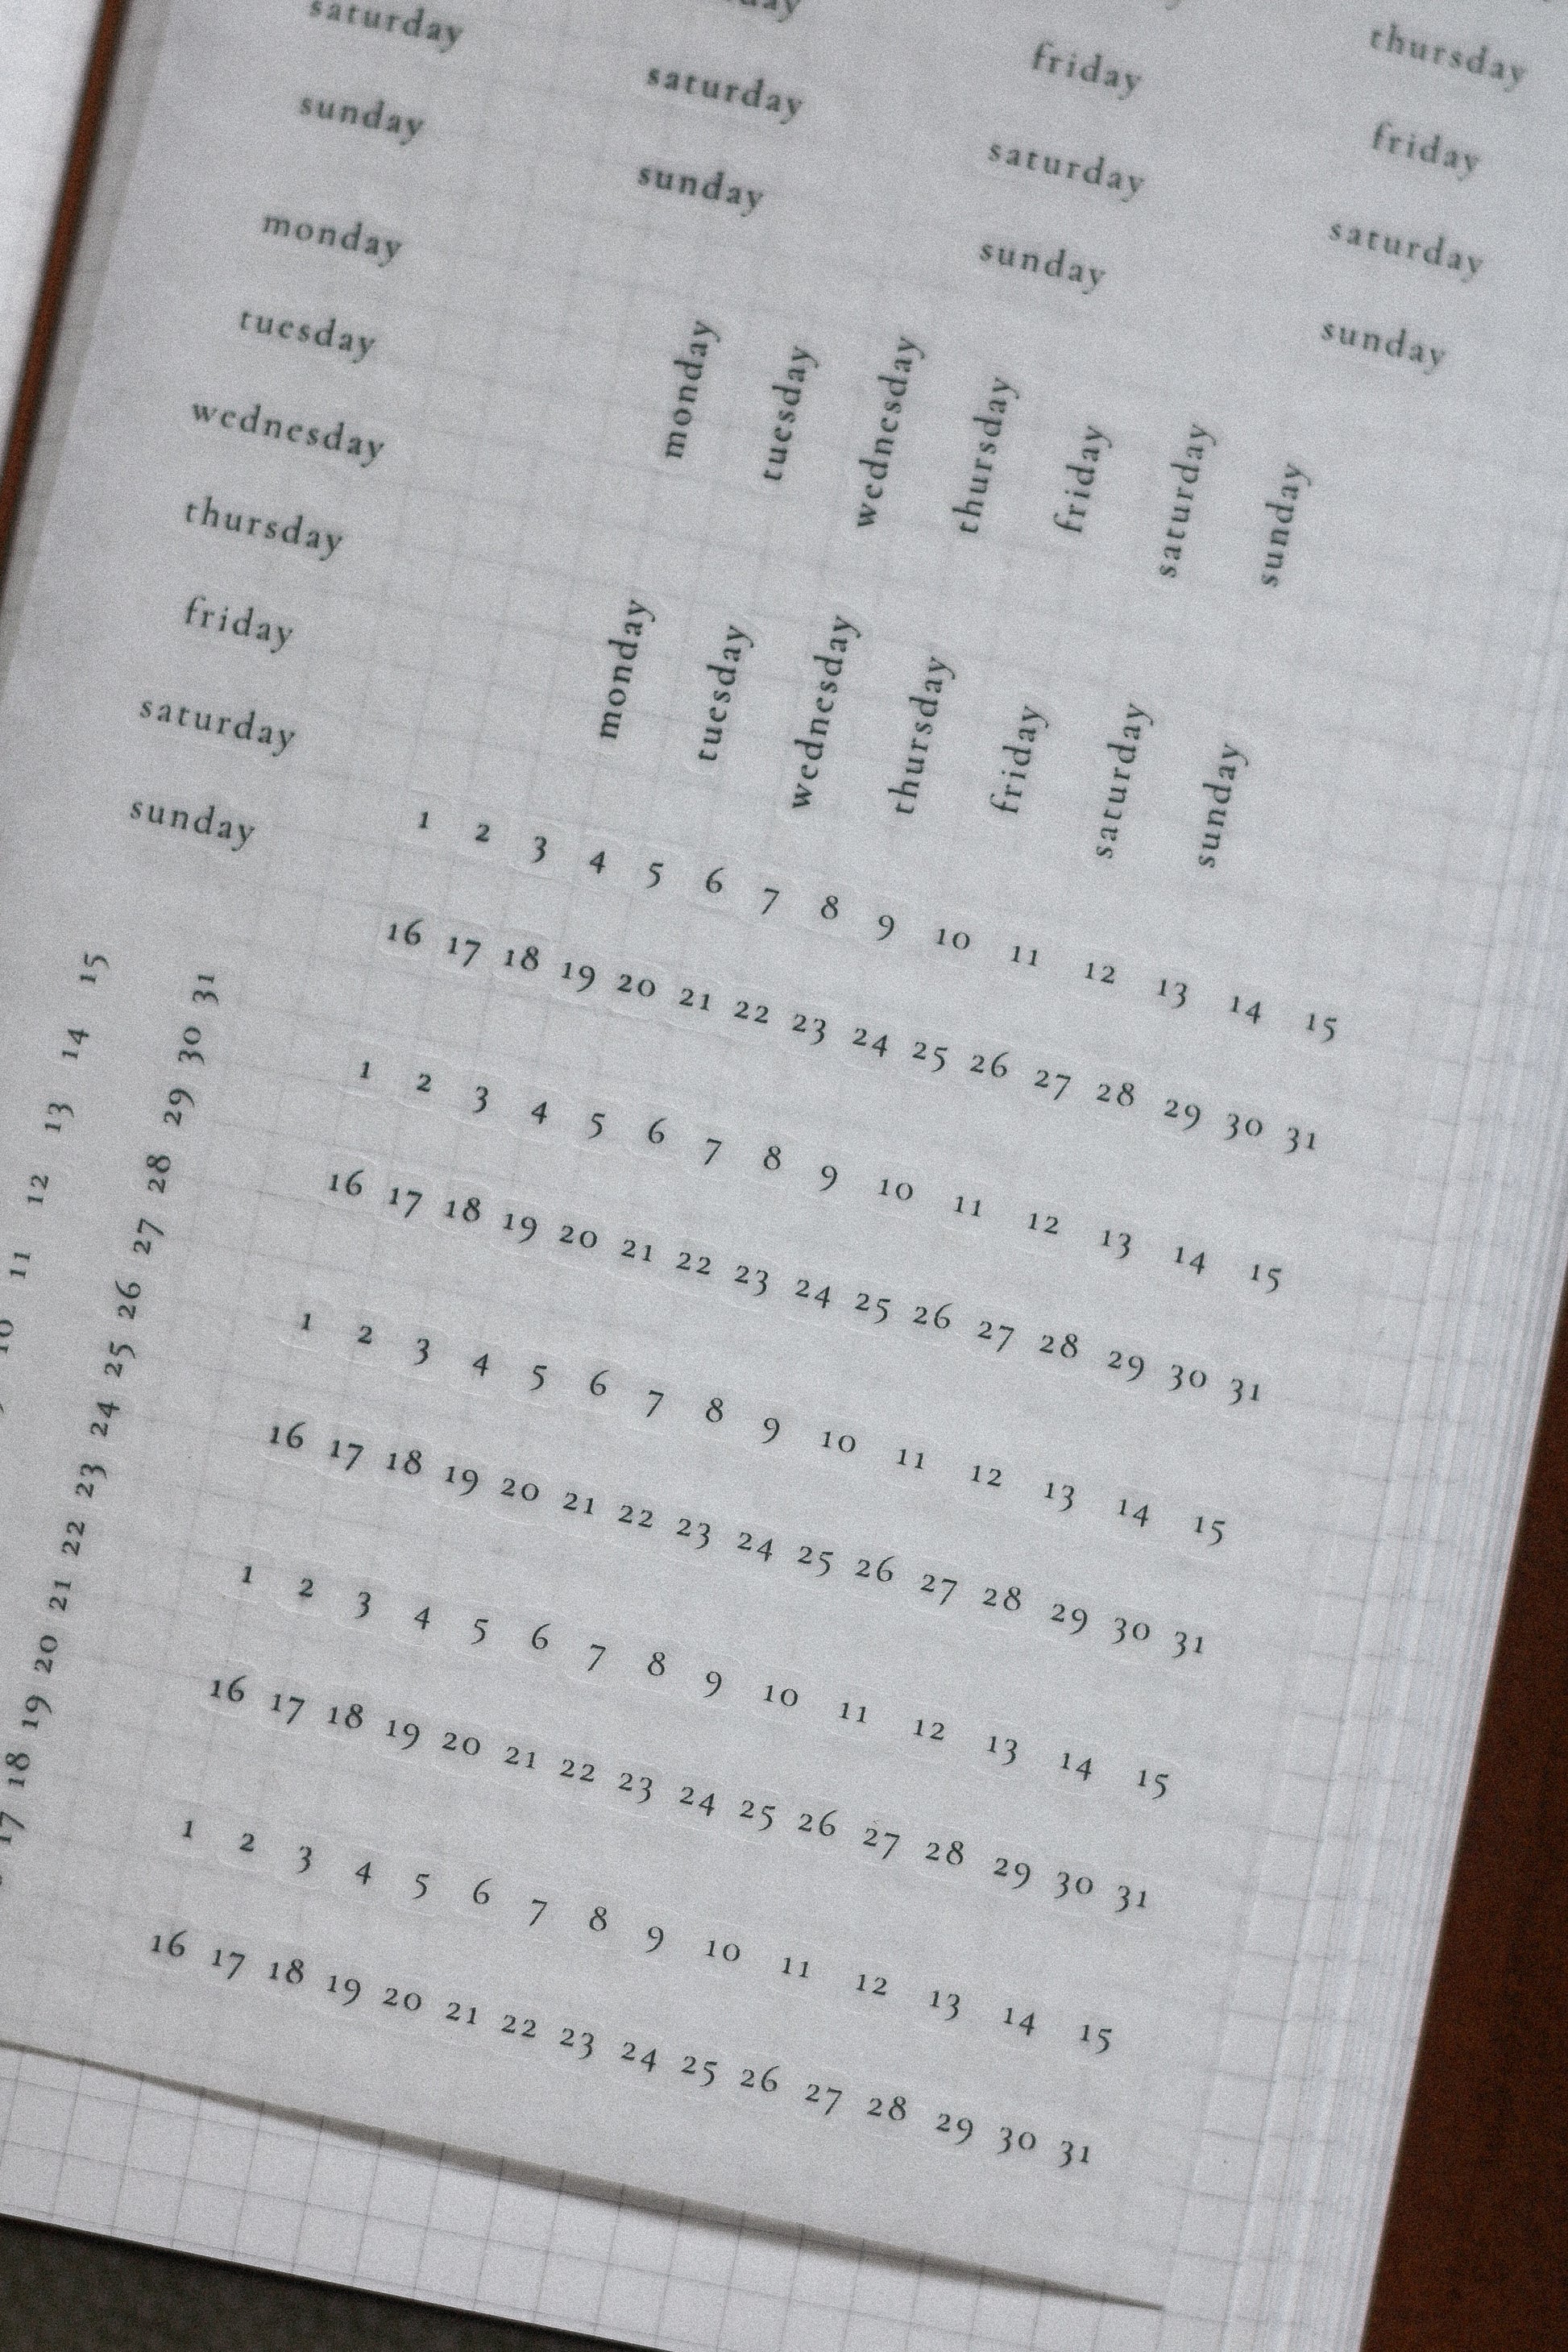 saturday
sunday
saturday
sunday
friday
saturday
sunday
thursday
friday
saturday
sunday
monday
tuesday
wednesday
thursday
friday
saturday
sunday
monday
tuesday
wednesday
thursday
friday
saturday
sunday
monday
tuesday
wednesday
thursday
friday
saturday
sunday
11 12 13 14 15
17 18 19 20 21 22 23 24 25 26 27 28 29 30 31
1 2 3 4 5 6 7 8 9 10 11 12 13 14 15
16 17 18 19 20 21 22 23 24 25 26 27 28 29 30 31
1 2 3 4 5 6 7 8 9 10 11 12 13 14 15
16 17 18 19 20 21 22 23 24 25 26 27 28 29 30 31
1 2 3 4 5 6 7 8 9 10 11 12 13 14 15
16 17 18 19 20 21 22 23 24 25 26 27 28 29 30 31
1 2 3 4 5 6 7 8 9 10 11 12 13 14 15
16 17 18 19 20 21 22 23 24 25 26 27 28 29 30 31
1 2 3 4 5 6 7 8 9 10 11 12 13 14 15
16 17 18 19 20 21 22 23 24 25 26 27 28 29 30 31